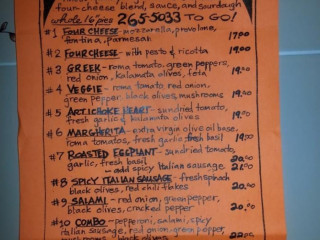 four-cheese blend, sauce, and sourdough
whole 16" pies 265-5033 TO GO!
#1 FOUR CHEESE - mozzarella, provolone, fontina, parmesan 17.00
#2 FOUR CHEESE - with pesto & ricotta 19.00
#3 GREEK - roma tomato, green peppers, red onion, kalamata olives, feta 19.00
#4 VEGGIE - roma tomato, red onion, green pepper, black olives, mushrooms 19.00
#5 ARTICHOKE HEART - sundried tomato, fresh garlic & kalamata olives 19.00
#6 MARGHERITA - extra virgin olive oil base, roma tomatoes, fresh garlic fresh basil 19.00
#7 ROASTED EGGPLANT - sundried tomato, garlic, fresh basil 20.00
- add spicy Italian sausage 21.00
#8 SPICY ITALIAN SAUSAGE - fresh spinach black olives, red chili flakes 20.00
#9 SALAMI - red onion, green pepper, black olives, cracked pepper 20.00
#10 COMBO - pepperoni, salami, spicy italian sausage, red onion, green pepper,
mushrooms black olives 22.00